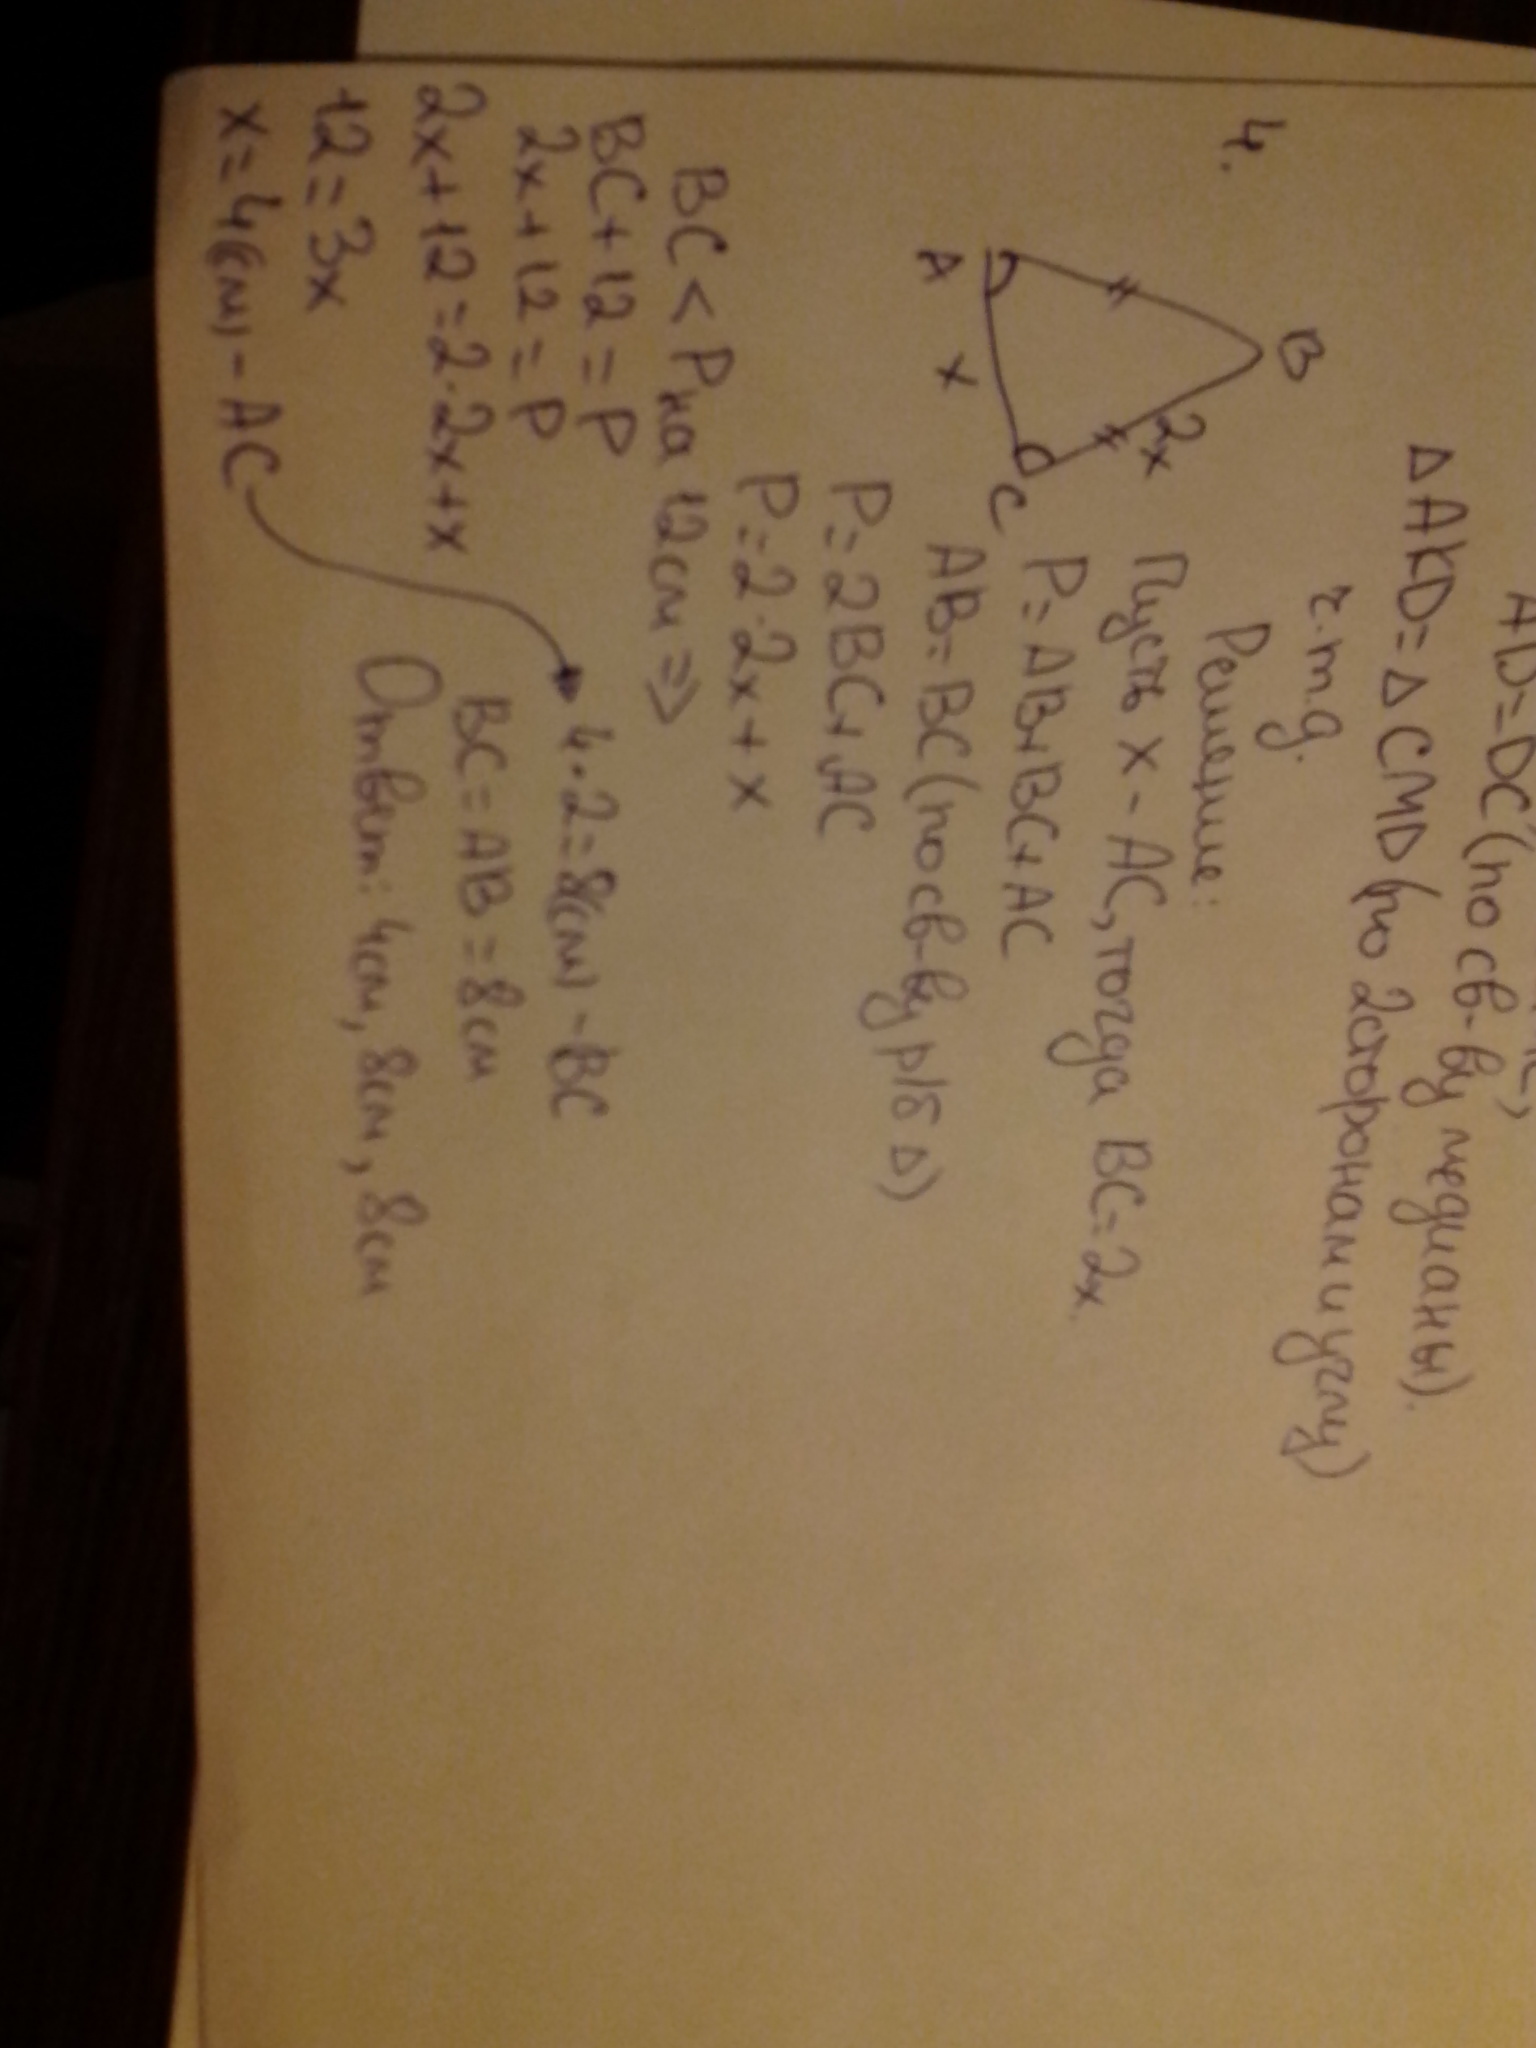 AD=DC (по св-ву медианы).
ΔAKD=ΔCMD (по 2 сторонам и углу)
ч.т.д.
4.
B
2x
A
x
C
Решение:
Пусть x - AC, тогда BC=2x.
P=AB+BC+AC
AB=BC (по св-ву р/б Δ)
P=2BC+AC
P=2·2x+x
BC < P на 12см =>
BC+12=P
2x+12=P
2x+12=2·2x+x
12=3x
x=4(см)-AC
4·2=8(см)-BC
BC=AB=8см
Ответ: 4см, 8см, 8см